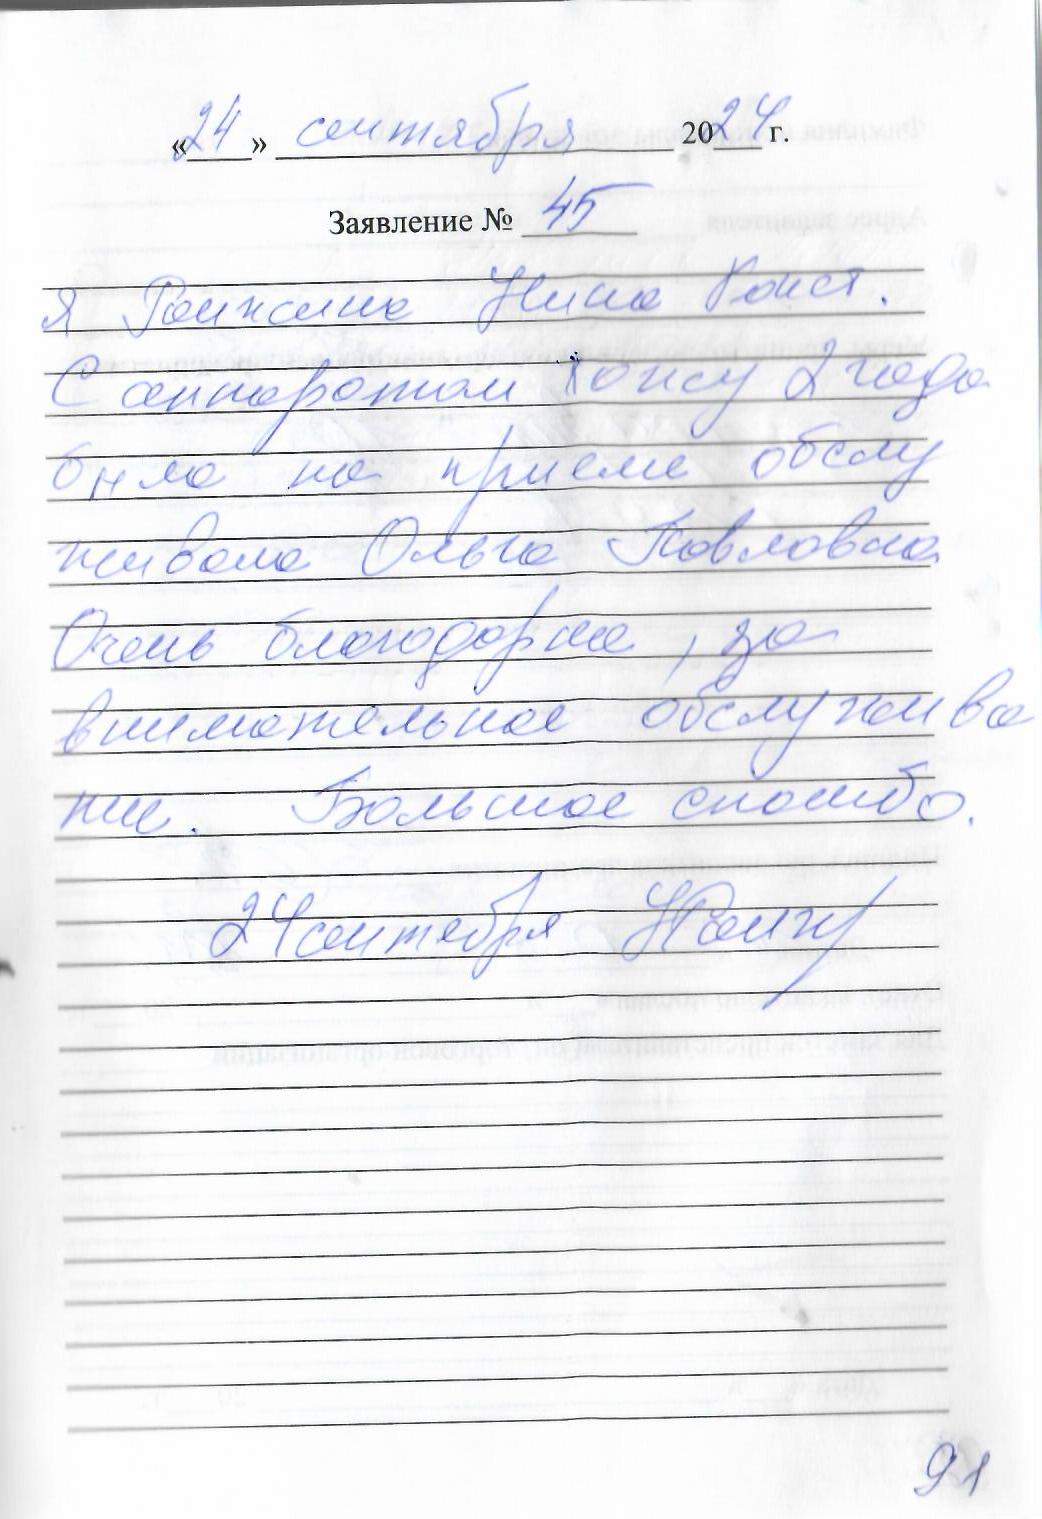 «24» сентября 2024 г.
Заявление № 45
Я Ранжина Нина Конст.
С аппаратом хожу 2 года
была на приеме обслу
живала Ольга Павловна
Очень благодарна, за
внимательное обслужива
ние. Большое спасибо.
24 сентября
91